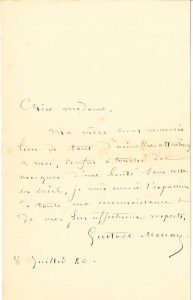 Chère madame,
Ma mère vous remercie
bien de tant d'aimables attentions
à moi, confus & touché des
marques d'une bonté sans cesse
en éveil, je vous envoie l'expression
de toute ma reconnaissance &
de mes plus affectueux respects.
Gustave Moreau
8 Juillet 80.